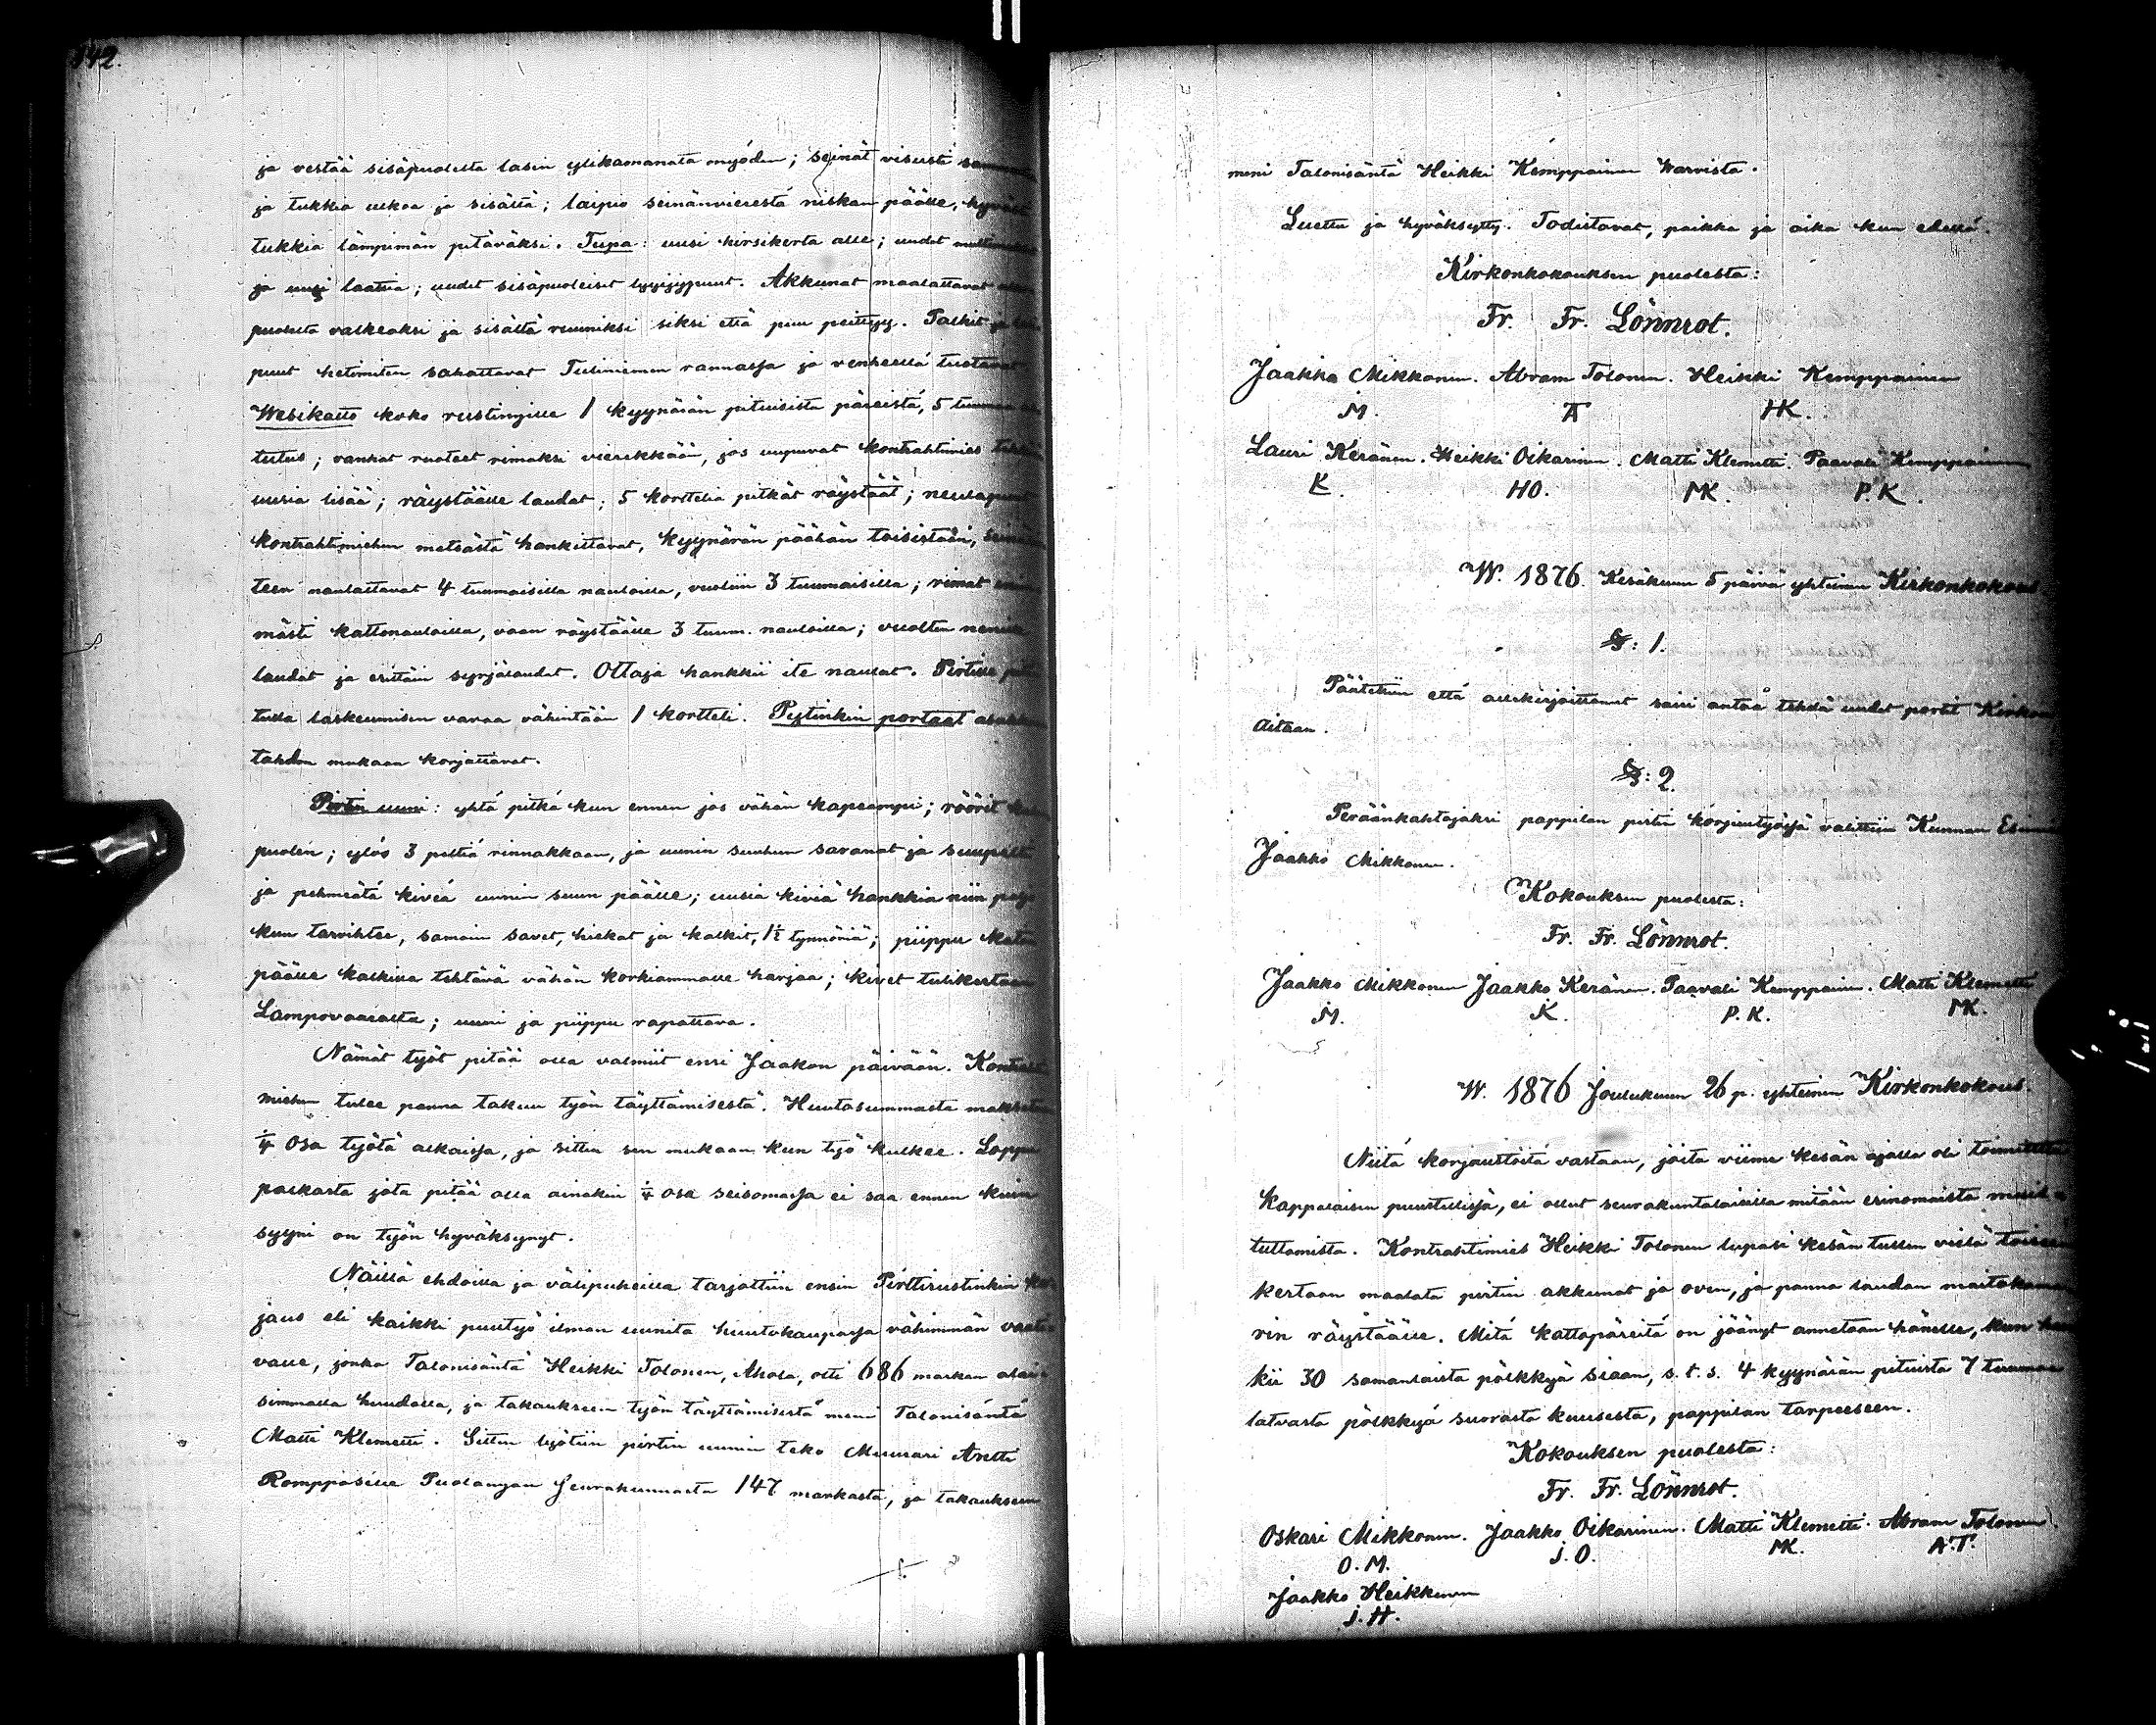 142.
ja vestää sisäpuolelta lasin ylikamanata myöden; seinät visusti
ja tukkia ulkoa ja sisältä; laipio seinänvierestä niskan päälle, hyvästi
tukkia lämpimän pitäväksi. Tupa: uusi hirsikerta alle; uudet
ja uusi laatia; uudet sisäpuoleiset lyyijypuut. Akkunat maalattavat
puolelta valkeaksi ja sisältä ruuniksi siksi että puu peittyy. Palkit ja
puut hetimiten sahattavat Tuliniemen rannassa ja venheellä tuotavat
Wesikatto koko rustingille 1 kyynärän pituisista päreistä, 5 tuuman
tutus; vanhat ruoteet rimaksi vierekkään, jos uupuvat kontrahtimies
uusia lisää; räystäälle laudat; 5 korttelia pitkät räystäät; neulapuut
kontrahtimiehen metsästä hankittavat, kyynärän päähän toisistaan,
teen naulattavat 4 tuumaisilla nauloilla, vuoliin 3 tuumaisilla; rimat
mästi kattonauloilla, vaan räystäälle 3 tuum. nauloilla; vuolten nenille
laudat ja erittäin syrjälaudat. Ottaja hankkii ite naulat. Pirtille
tulla laskeumisen varaa vähintään 1 kortteli. Pytinkin portaat
tahdon mukaan korjattavat.
Pirtin uuni: yhtä pitkä kun ennen jos vähän kapeampi; röörit
puolin; ylös 3 peltiä rinnakkaan, ja uunin suuhun saranat ja suupelti
ja pehmeätä kiveä uunin suun päälle; uusia kiviä hankkia niin
kun tarvihtee, samoin savet, hiekat ja kalkit, 1½ tynnöriä; piippu katon
päälle kalkilla tehtävä vähän korkiammalle harjaa; kivet tulikertaan
Lampovaaralta; uuni ja piippu rapattava.
Nämät työt pitää olla valmiit ensi Jaakon päivään. Kontrahti
miehen tulee panna takuu työn täyttämisestä. Huutosummasta maksetaan
¼ osa työtä alkaissa, ja sitten sen mukaan kun työ kulkee. Loppu
palkasta jota pitää olla ainakin ¼ osa seisomassa ei saa ennen kuin
syyni on työn hyväksynyt.
Näillä ehdoilla ja välipuheilla tarjottiin ensin Pirttirustinkin kor
jaus eli kaikki puutyö ilman uunita huutokaupassa vähimmän vaati-
valle, jonka Talonisäntä Heikki Tolonen, Ahola, otti 686 markan alai-
simmalla huudolla, ja takaukseen työn täyttämisestä meni Talonisäntä
Matti Klemetti. Sitten lyötiin pirtin uunin teko Muurari Antti
Romppasille Puolangan Seurakunnasta 147 markasta, ja takaukseen
meni Talonisäntä Heikki Kemppainen Warvista.
Luettu ja hyväksytty. Todistavat, paikka ja aika kun edellä.
Kirkonkokouksen puolesta:
Fr. Fr. Lönnrot.
Jaakko Mikkonen. Abram Tolonen. Heikki Kemppainen
M. A HK.
Lauri Keränen. Heikki Oikarinen. Matti Klemetti. Paavali Kemppainen
K. HO. MK. P.K.
W. 1876. Kesäkuun 5 päivä yhteinen Kirkonkokous
§: 1.
Päätettiin että allekirjoittanut saisi antaa tehdä uudet portit Kirkon
Aitaan.
§: 2.
Peräänkahtojaksi pappilan pirtin korjuutyössä valittiin Kunnan
Jaakko Mikkonen.
Kokouksen puolesta:
Fr. Fr. Lönnrot.
Jaakko Mikkonen Jaakko Keränen. Paavali Kemppainen. Matti Klemetti
M. K. P.K. MK.
W. 1876 Joulukuun 26 p. yhteinen Kirkonkokous.
Niitä korjaustöitä vastaan, joita viime kesän ajalla oli toimitettu
Kappalaisen puustellissa, ei ollut seurakuntalaisilla mitään erinomaista muis-
tuttamista. Kontrahtimies Heikki Tolonen lupasi kesän tullen vielä toiseen
kertaan maalata pirtin akkunat ja oven, ja panna laudan maitokama
rin räystäälle. Mitä kattopäreitä on jäänyt annetaan hänelle, kun
kii 30 samanlaista pölkkyä siaan, s. t. s. 4 kyynärän pituista 7 tuuman
latvasta pölkkyä suorasta kuusesta, pappilan tarpeeseen.
Kokouksen puolesta:
Fr. Fr. Lönnrot.
Oskari Mikkonen. Jaakko Oikarinen. Matti Klemetti. Abram Tolonen.
O.M. J.O. MK. A.T.
Jaakko Heikkinen
J.H.